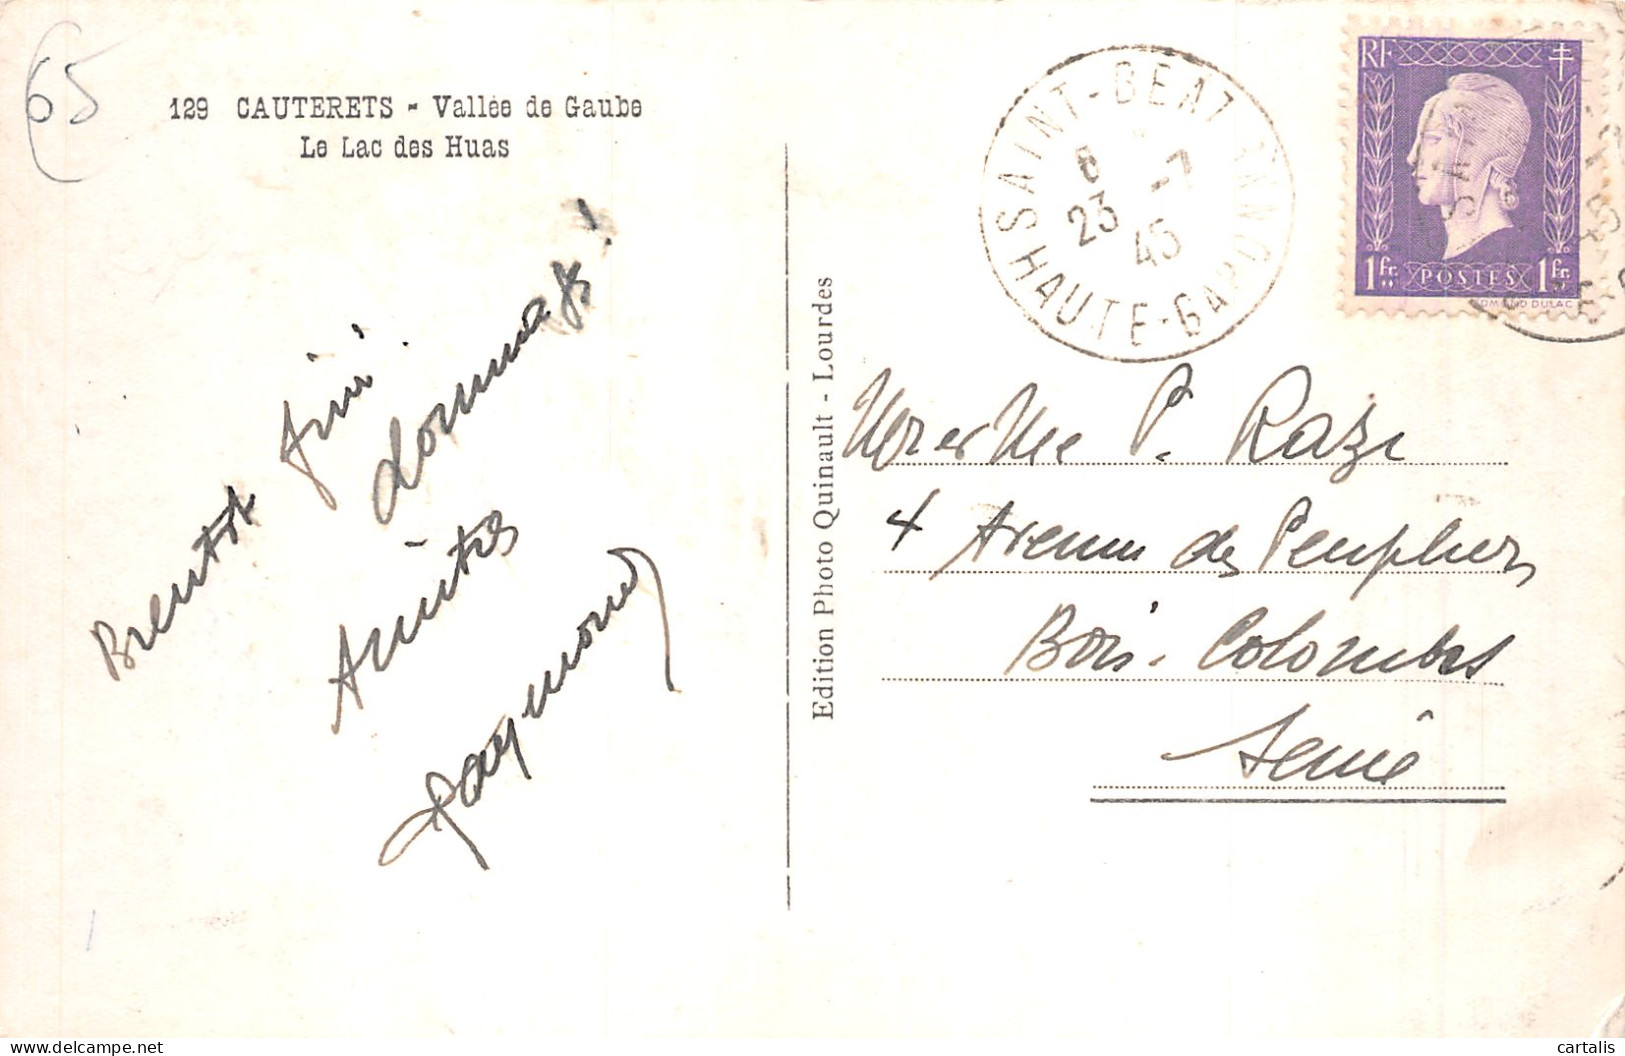 65
129 CAUTERETS - Vallée de Gaube
Le Lac des Huas
Bientôt fini
dommage !
Amitiés
Raymonde
Edition Photo Quinault - Lourdes
SAINT-BEAT
HAUTE-GARONNE
23 -7
45
RF
1fr. POSTES 1fr.
EDMOND DULAC
Mr et Mme P. Raze
4 Avenue des Peupliers
Bois-Colombes
Seine
cartalis